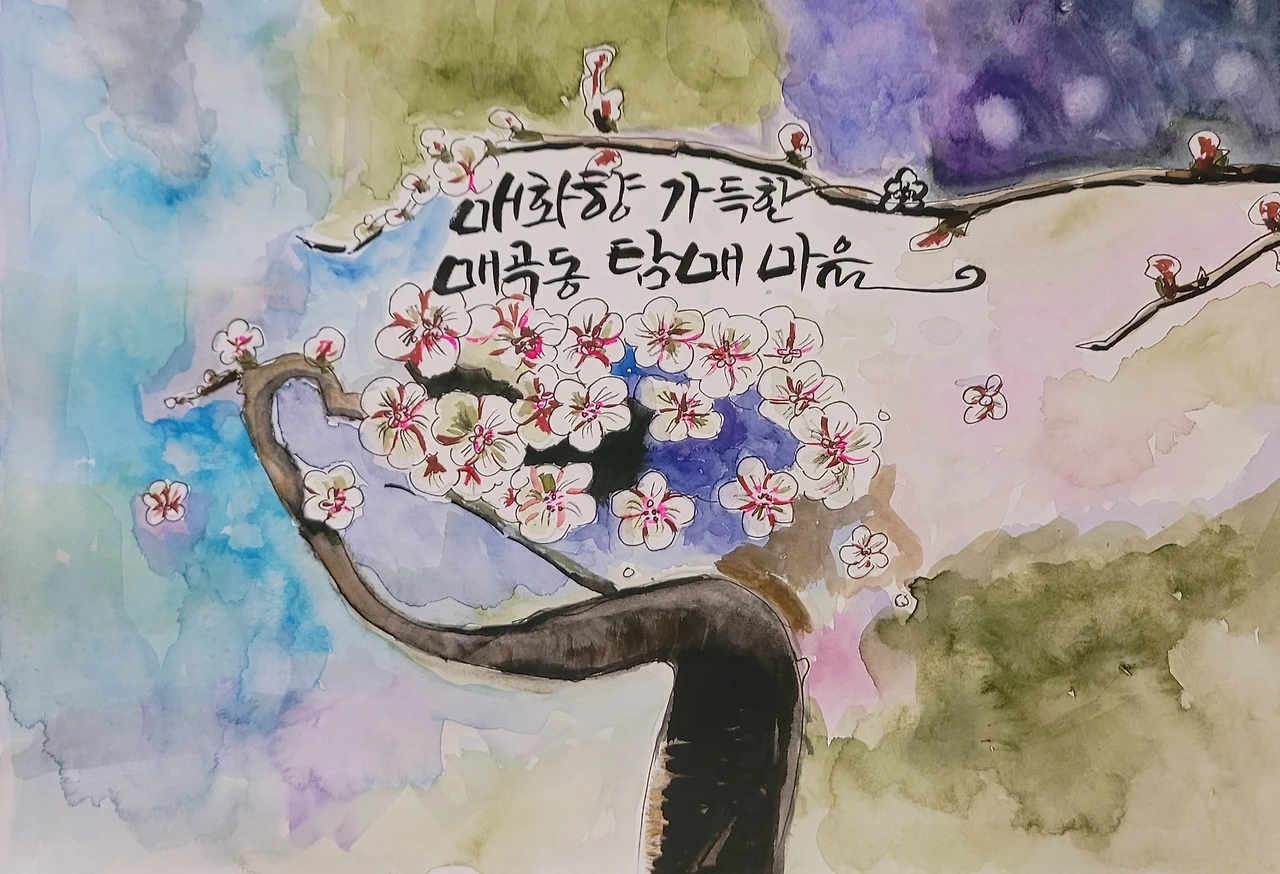 매화향 가득한
매곡동 탐매 마을